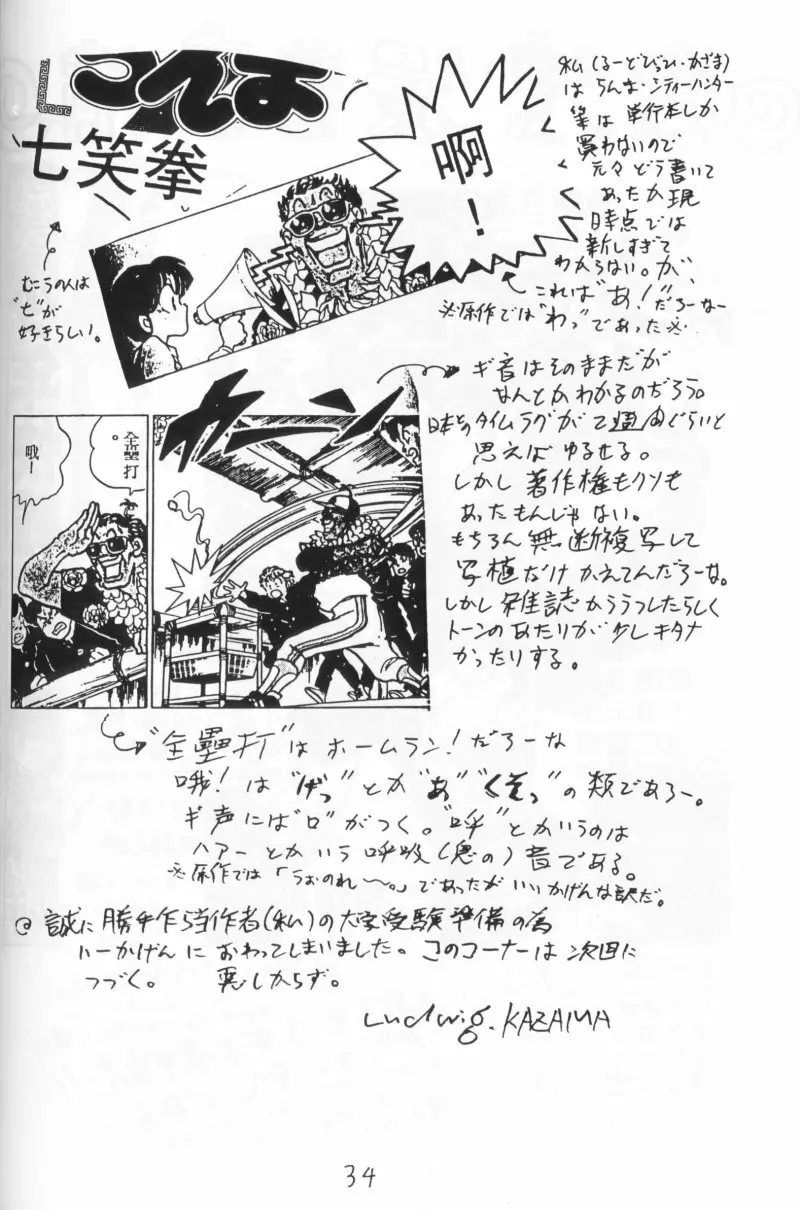 らんま
七笑拳
啊！
私(るーどびひ・かざま)
はらんま・シティーハンター
等は単行本しか
買わないので
元々どう書いて
あったか現
時点では
新しすぎて
わからない。が、
これは"あ！"だろーなー
※原作では"わっ"であった※
むこうの人は
"七"が
好きらしい。
カーン
ギ音はそのままだが
なんとかわかるのだろう。
日本とのタイムラグが2週間ぐらいと
思えばゆるせる。
しかし著作権もクソも
あったもんじゃない。
もちろん無断複写して
写植だけかえてんだろーな。
しかし雑誌からうつしたらしく
トーンのあたりが少しキタナ
かったりする。
全壘打。
哦！
"全壘打"はホームラン！だろーな
哦！は"げっ"とか"あ""くそっ"の類であろー。
ギ声には"口"がつく。"呼"とかいうのは
ハアーとかいう呼吸(息の)音である。
※原作では「うぉのれ〜。」であったがいいかげんな訳だ。
@ 誠に勝手乍ら当作者(私)の大学受験準備の為
いーかげんにおわってしまいました。このコーナーは次回に
つづく。 悪しからず。
Ludwig. KAZAMA
34